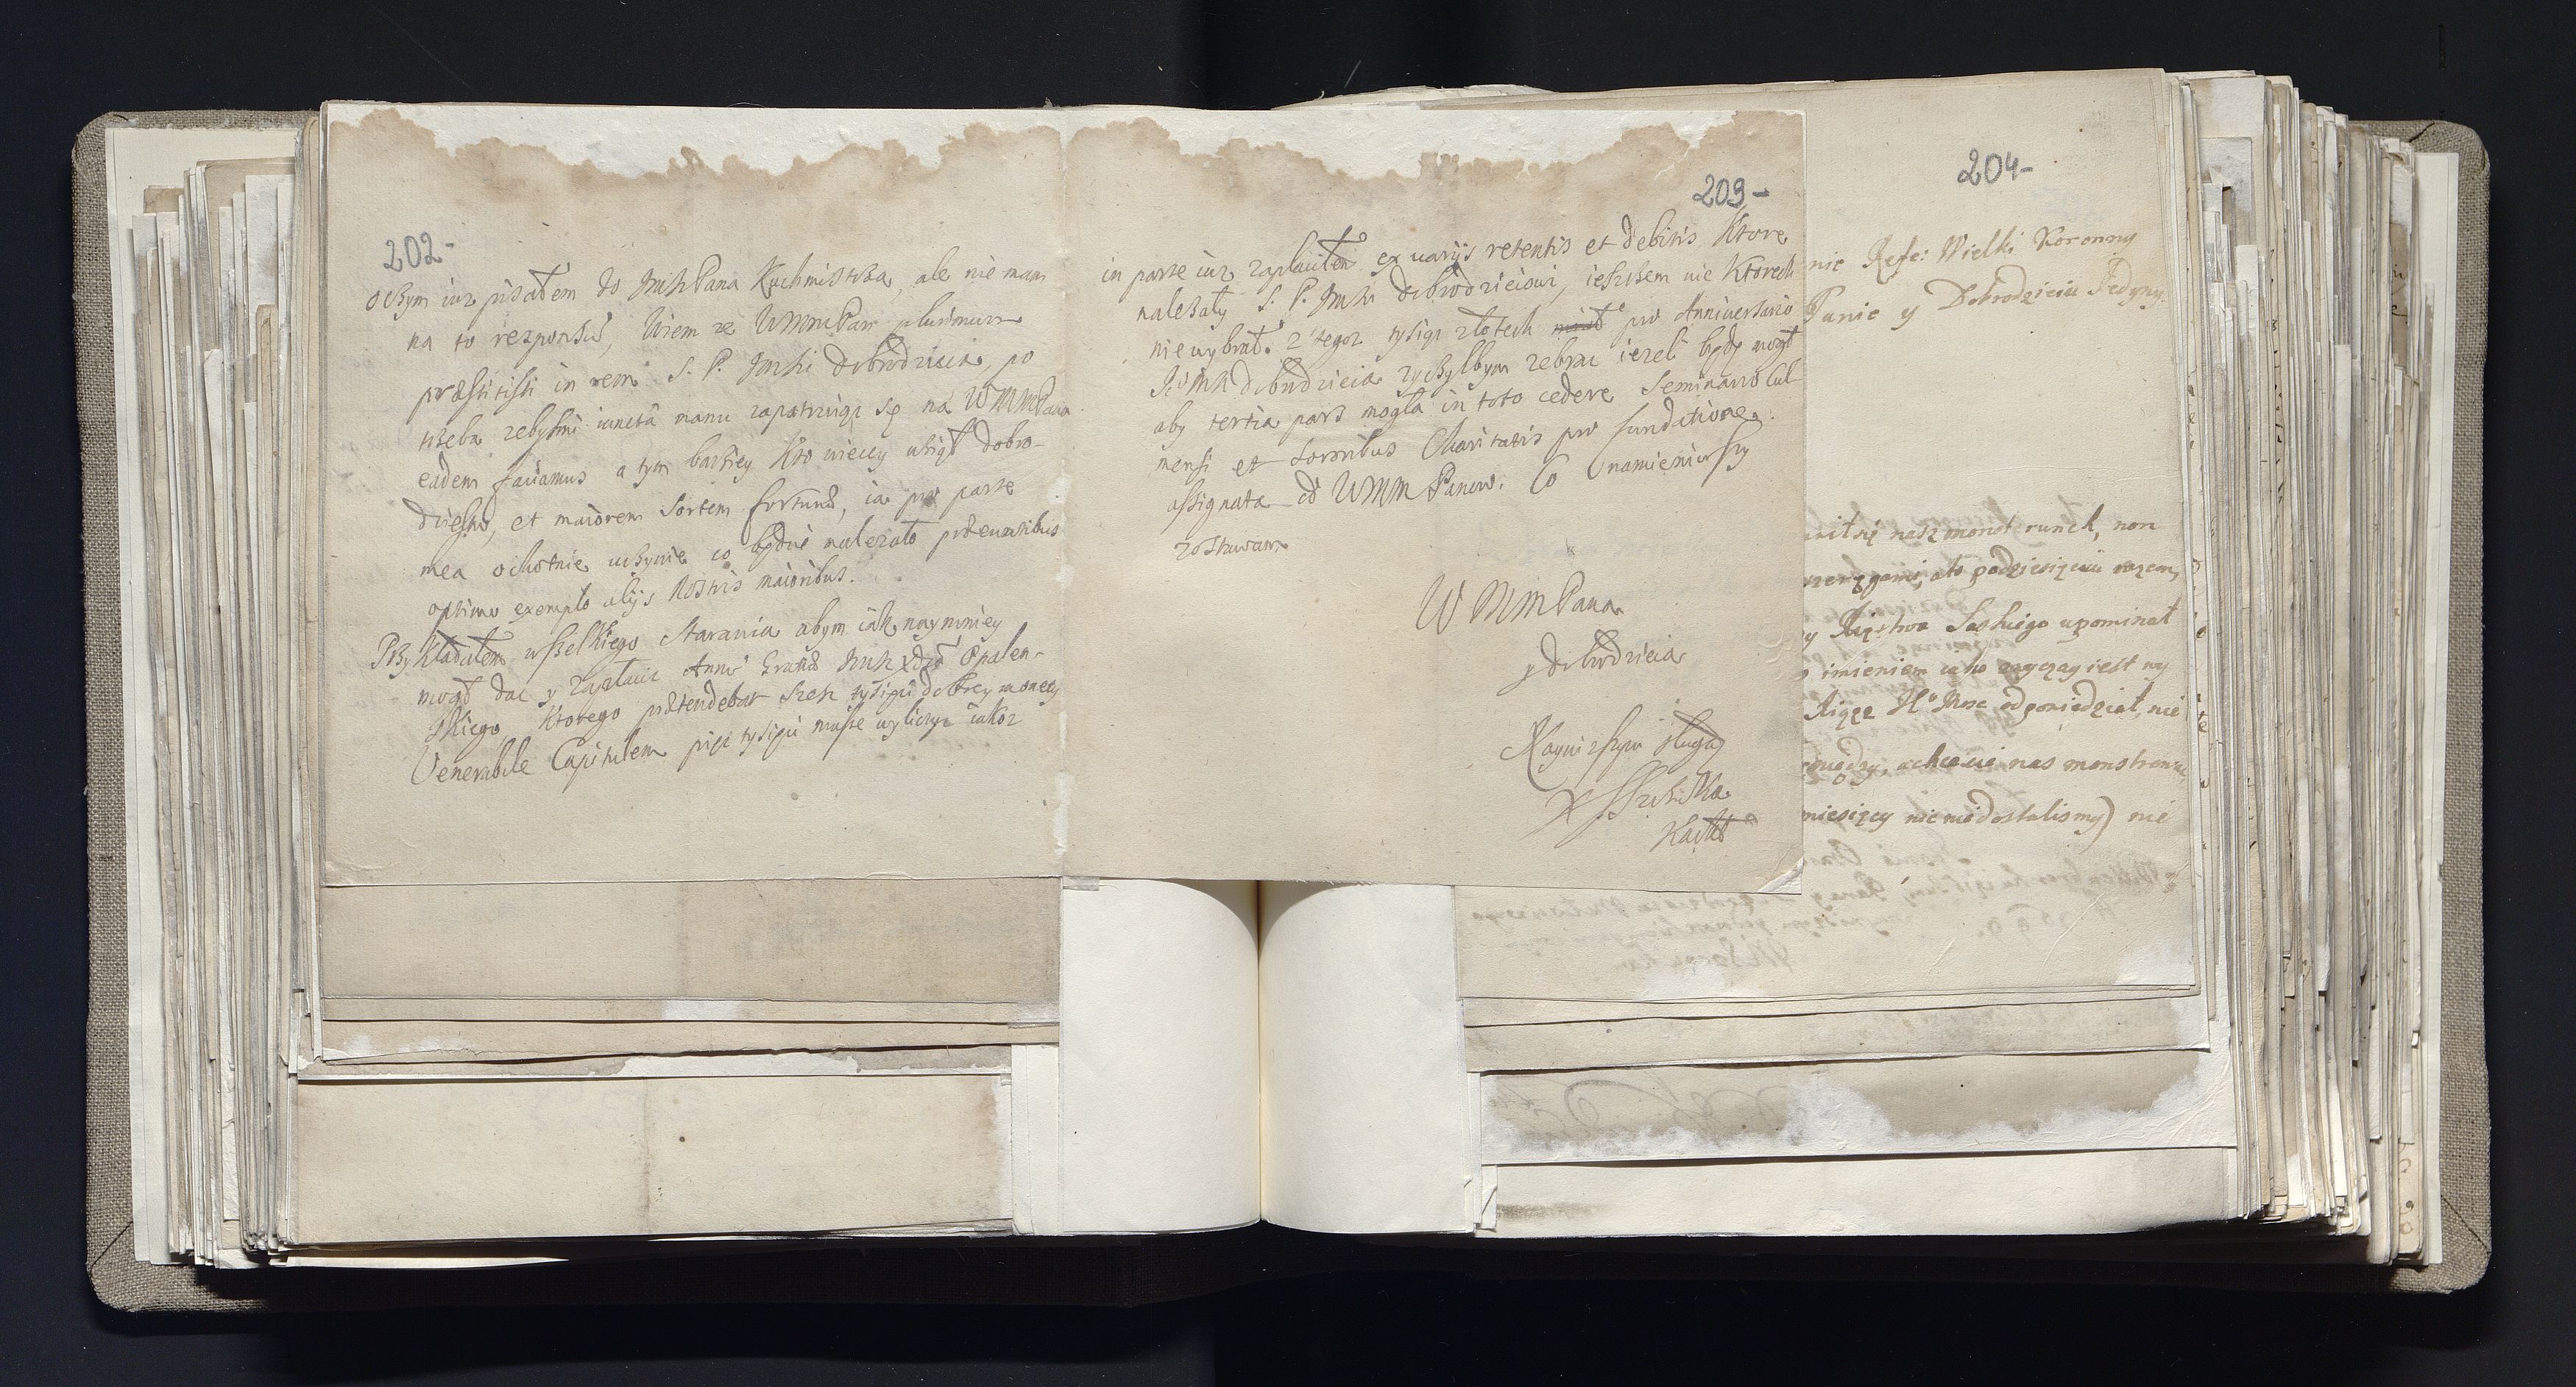 202-
oczym iuz pisałem do JmhPana Kuchmistrza, ale nie mam
na to responsu, Wiem ze WMMPan plurimum
præstitisti in rem S. P. Jmhi dobrodzieia, po
trzeba zebysmi iunctâ manu zapatruiąc się na WMMPana
eadem faciamus a tym barziey Kto wiecey wziął dobro-
dzieystw, et maiorem Sortem fortunæ, ia pro parte
mea ochotnie uczynie co będzie nalezało præeuntibus
optimo exemplo alijs Nostris maioribus.
Przykładałem wszelkiego starania abym iak naymniey
mogł dac y zapłacic Anni Gratiæ Jmh xdzu Opalen-
skiego, Ktorego prætendebat Szesc tysięcy dobrey monety
Venerabile Capitulum pięc tysięcy musze wyliczyc iakoz
203-
in parte iuz zapłaciłem ex varijs retentis et debitis Ktore
nalezały S. P. Jmhi dobrodzieiowi, ieszczem nie Ktorech
niewybrał. z tegoz tysiąc złotech pro Anniversario
Jmh dobrodzieia zyczyłbym zebrac iezeli będę mogł
aby tertia pars mogła in toto cedere Seminario Cul-
mensi et Sororibus Charitatis pro fundatione
assignata od WMM Panow. Co namieniwszy
zostawam
WMMPana
y dobrodzieia
Naynizszym sługą
204-
nie Refe: Wielki Koronny
Panie y Dobrodzieiu Jedyny.
się nasz monsterunek, non
ale podziesięciu razem,
y Xięstwa Saskiego upominał
imieniem iako zwyczay iest wy
Xiąże Je° Mość odpowiedział, nie
a chcecie nas monstrowac,
miesięcy nic niedostalismy) nie